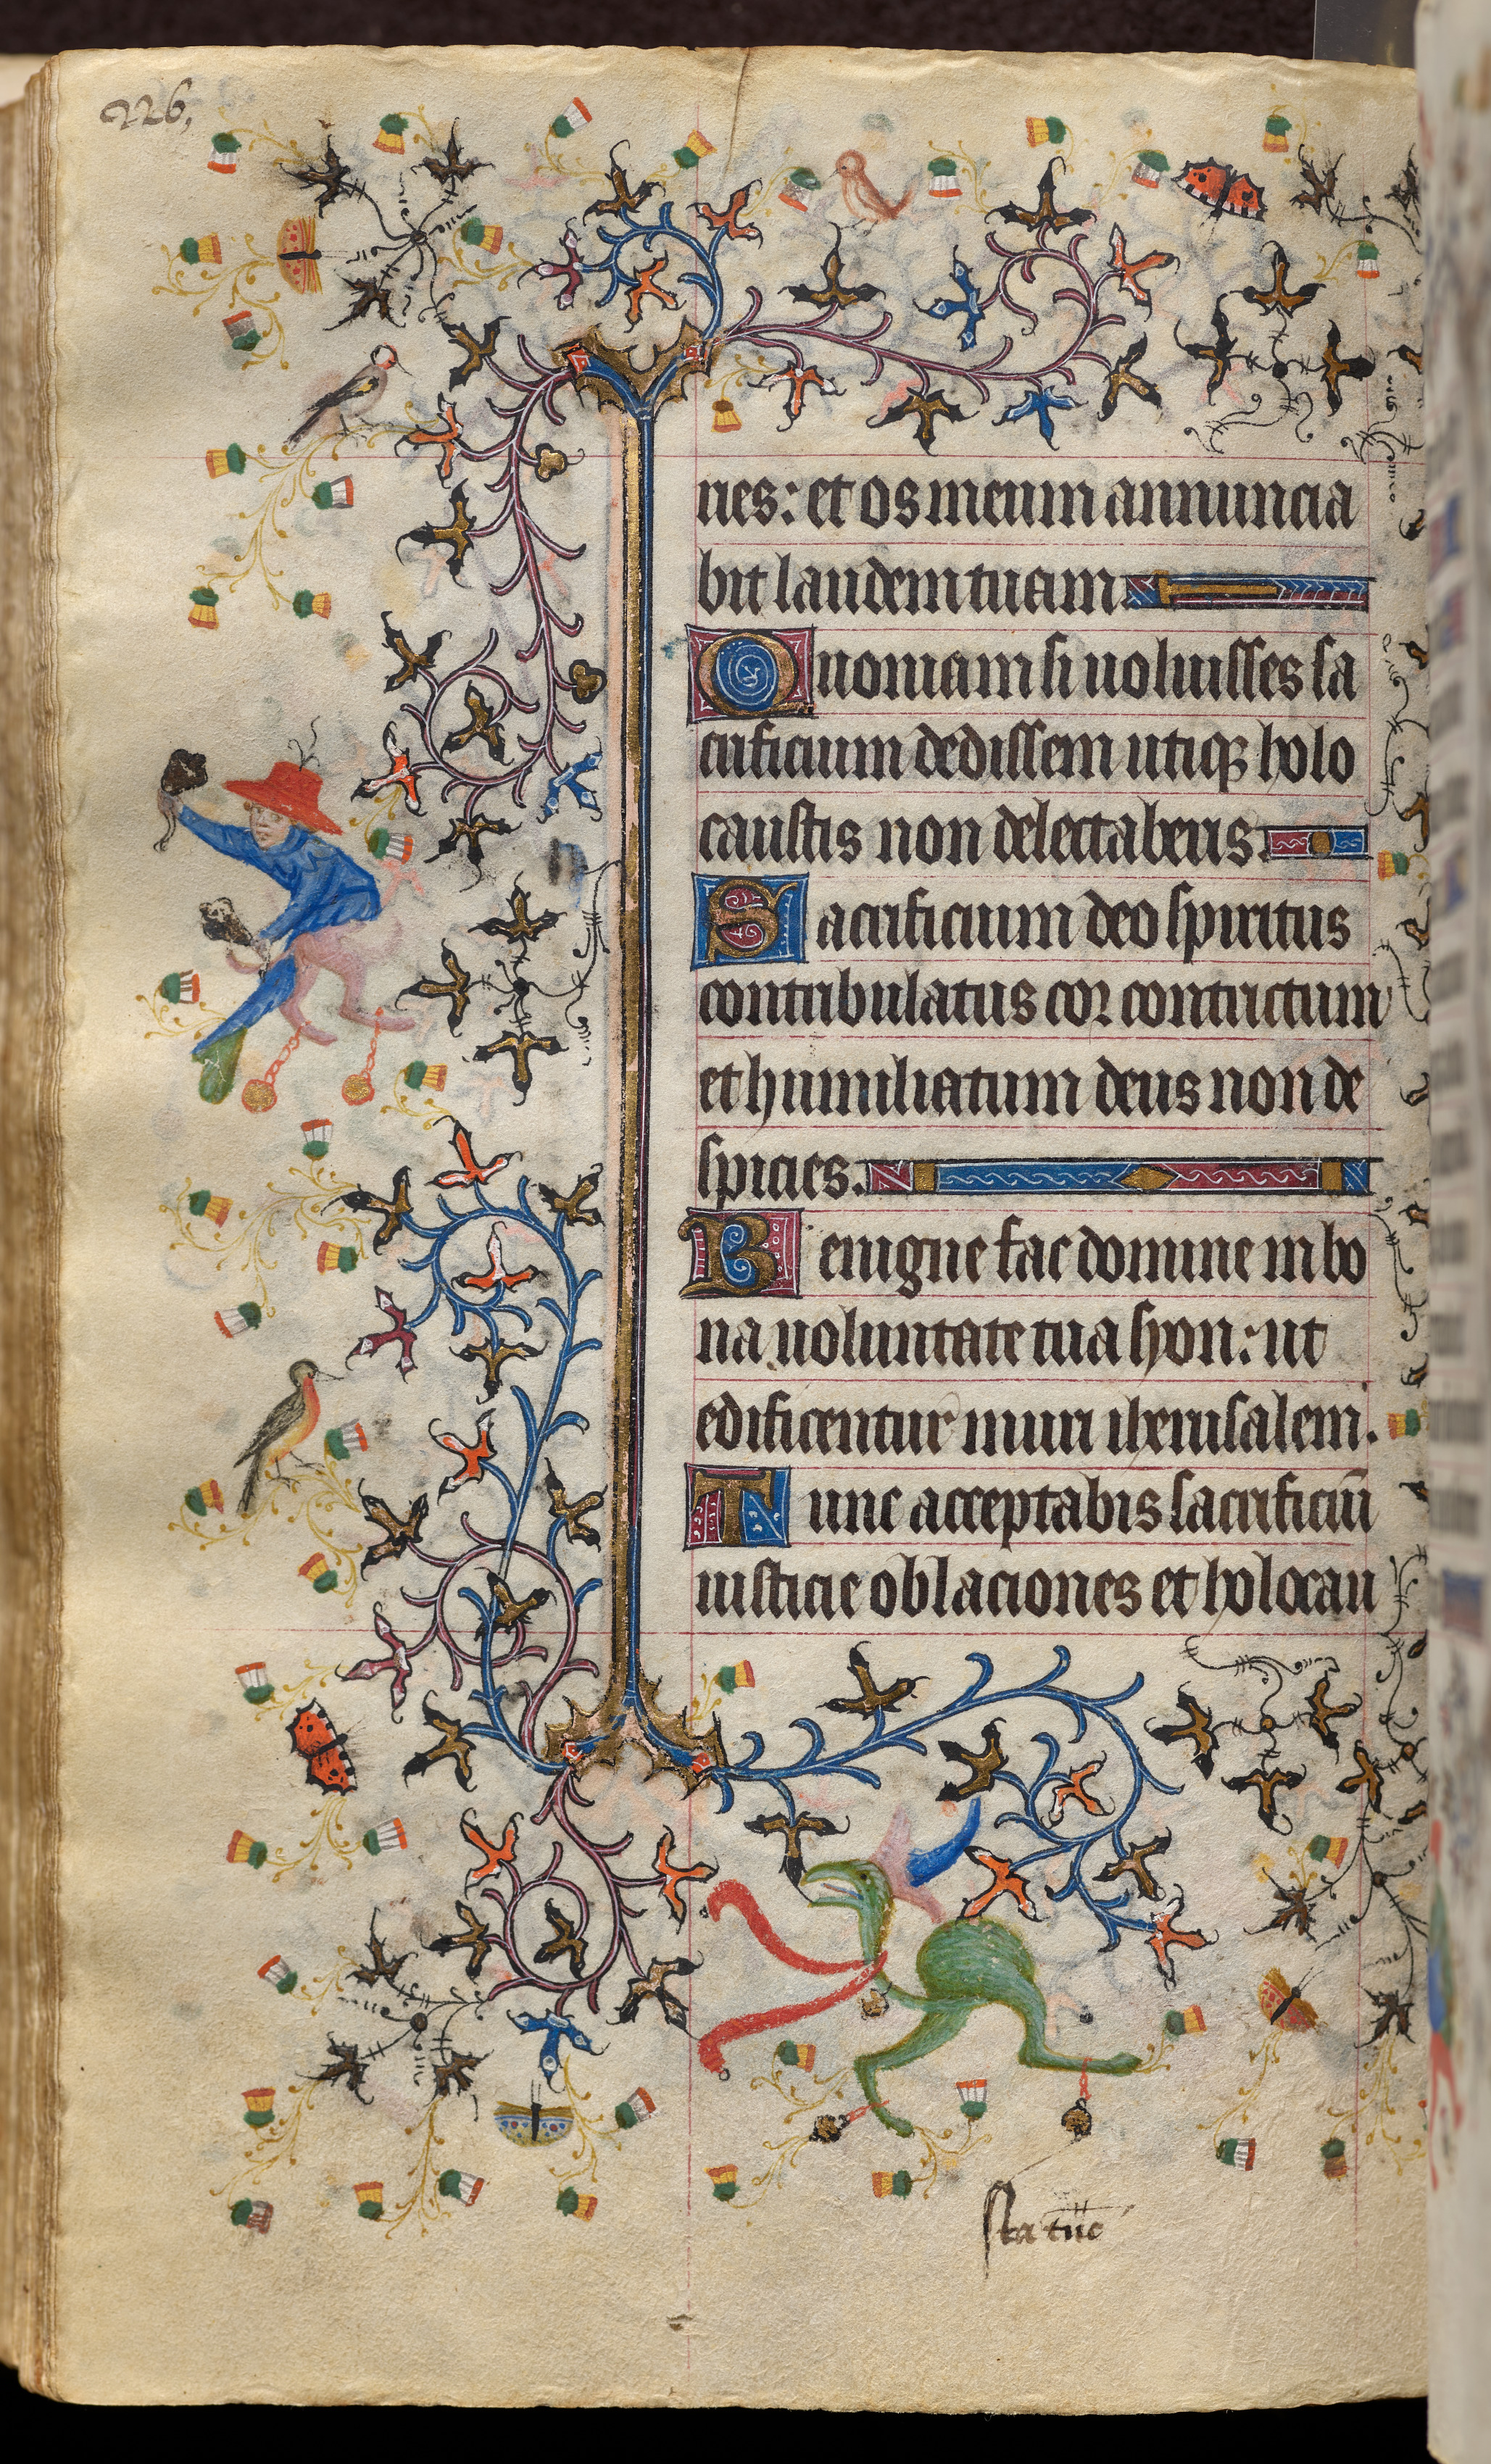 226,
ries: et os meum annuncia
bit laudem tuam.
Quoniam si uoluisses sa
crificium dedissem utiqꝫ holo
caustis non delectaberis.
Sacrificium deo spiritus
contribulatus cor contrictum
et humiliatum deus non de
spicies.
Benigne fac domine in bo
na uoluntate tua syon: ut
edificentur muri iherusalem.
Tunc acceptabis sacrificiū
iusticie oblaciones et holocau
sta tūc